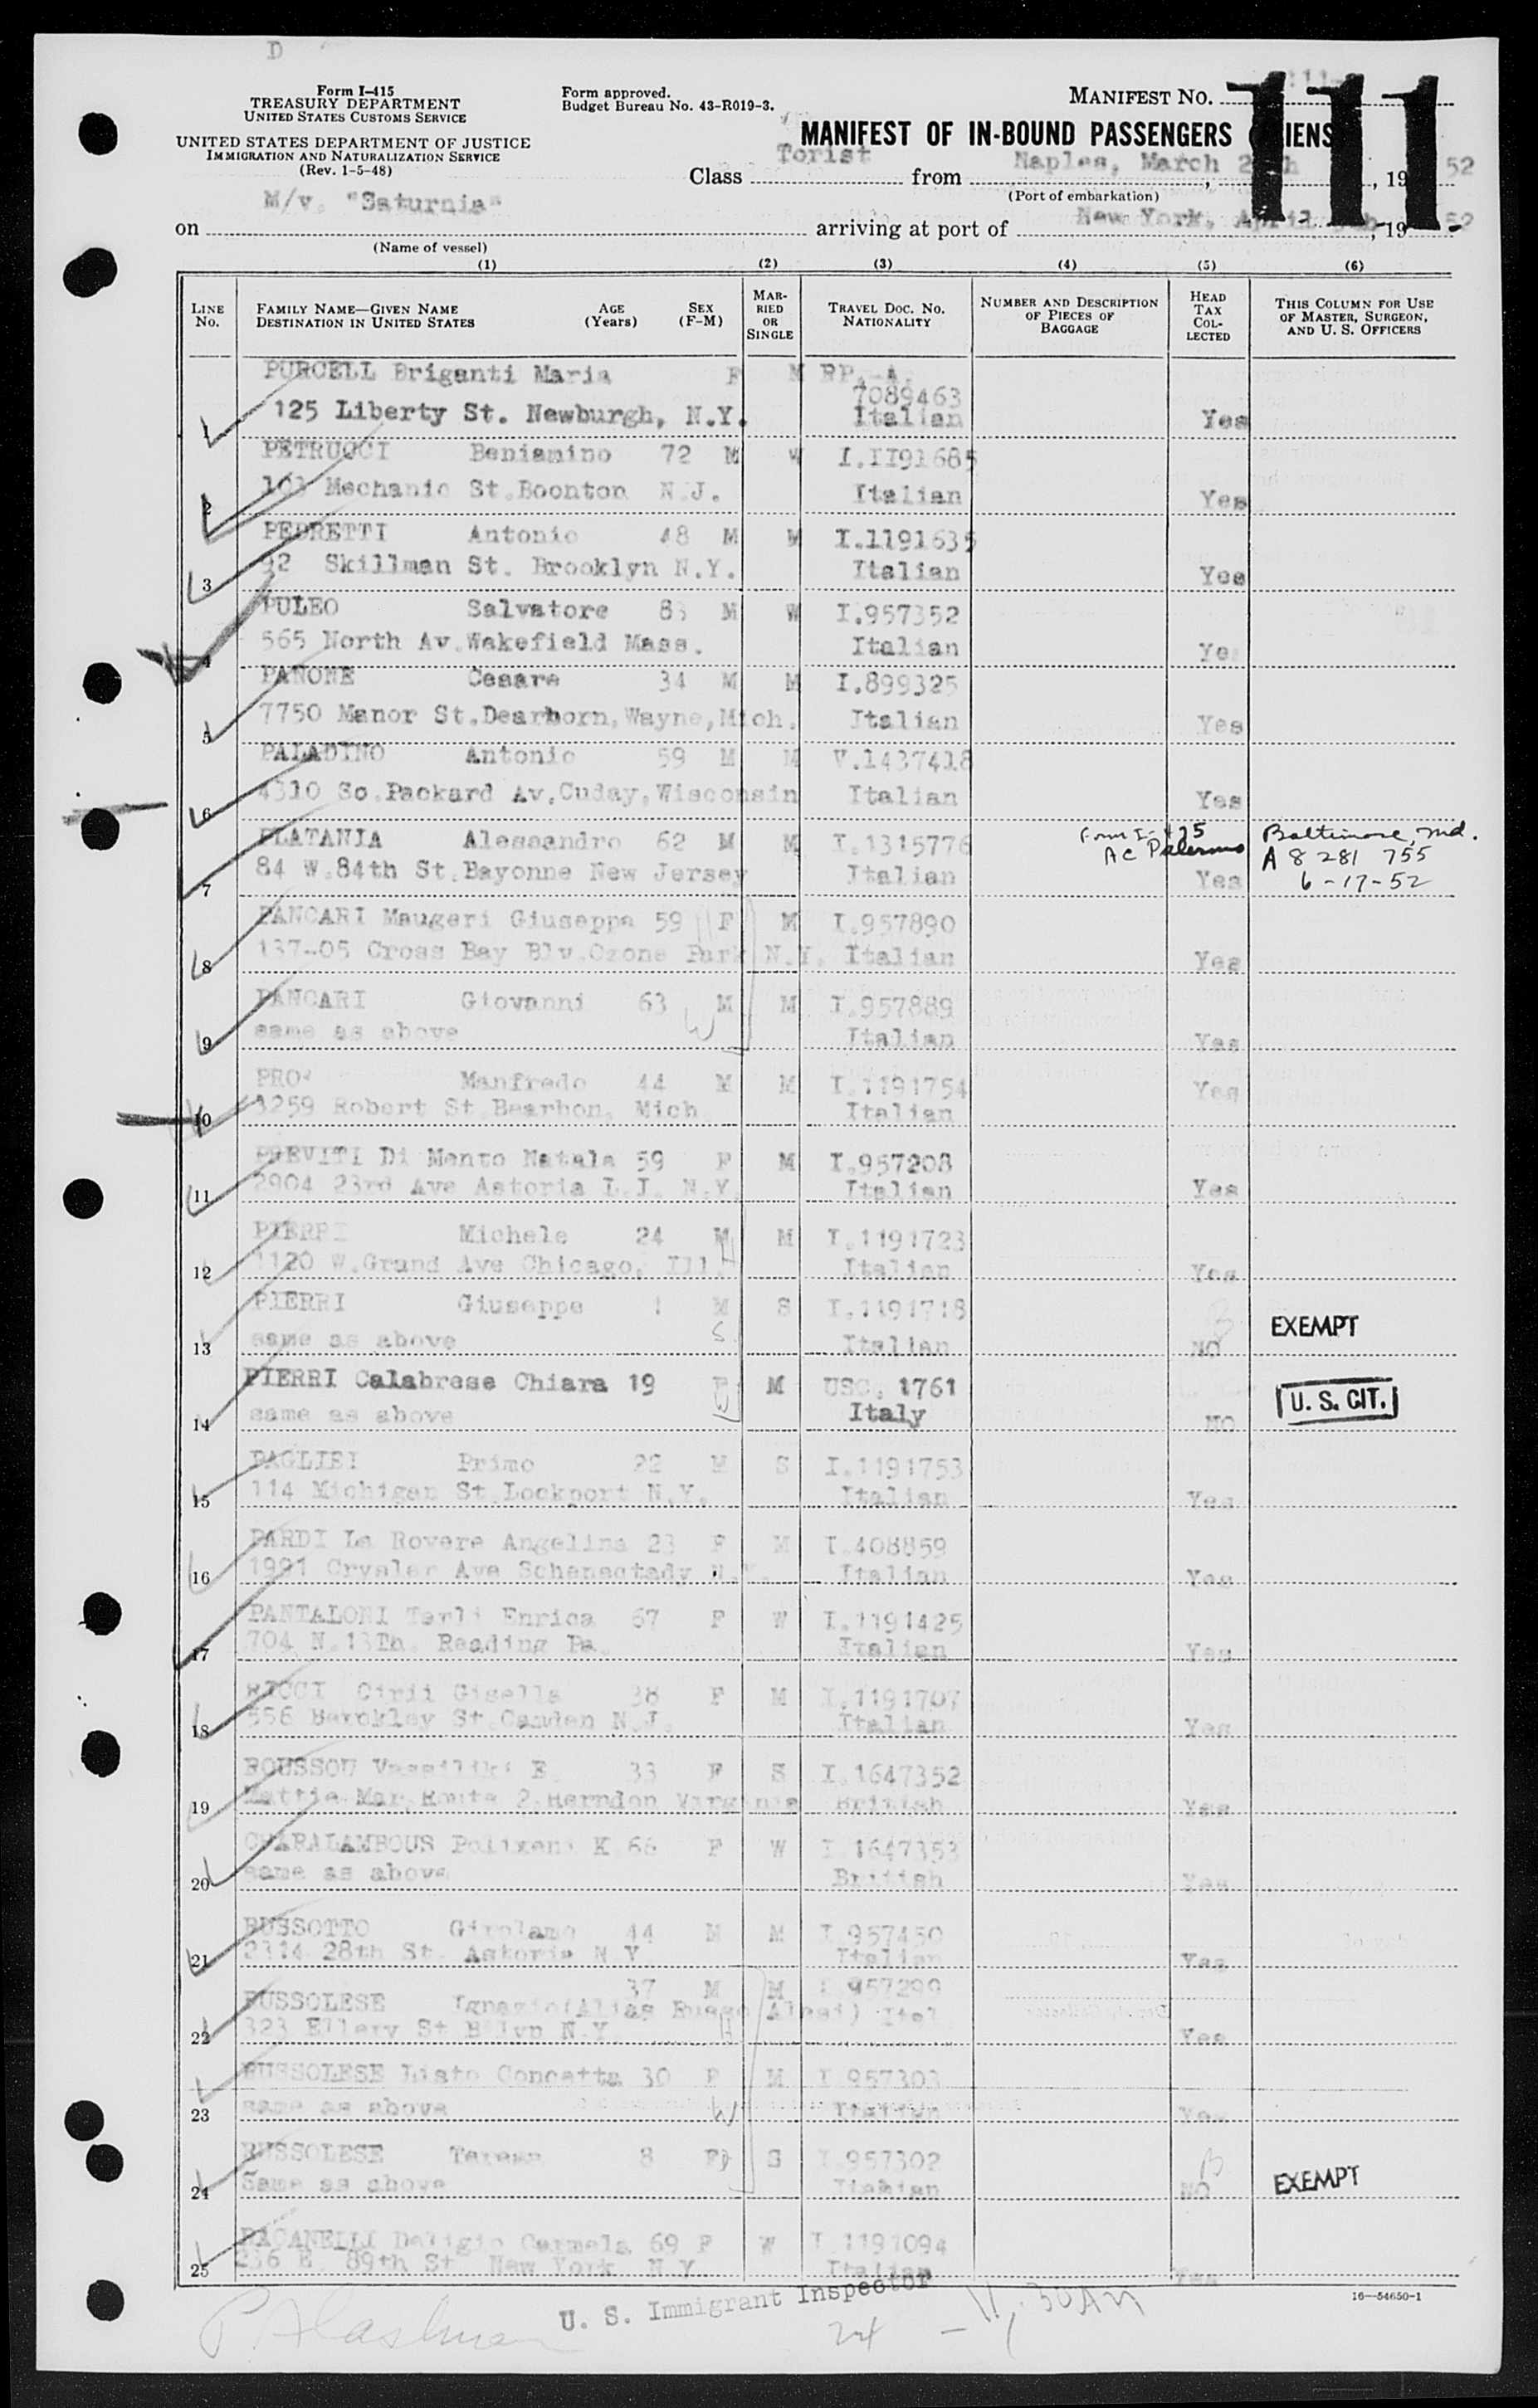 D
Form I-415
TREASURY DEPARTMENT
UNITED STATES CUSTOMS SERVICE
UNITED STATES DEPARTMENT OF JUSTICE
IMMIGRATION AND NATURALIZATION SERVICE
(Rev. 1-5-48)
Form approved.
Budget Bureau No. 43-R019-3.
MANIFEST NO. 111
MANIFEST OF IN-BOUND PASSENGERS
Class Torist from Naples, March , 19 52
(Port of embarkation)
on M/v. "Saturnia" arriving at port of New York, April , 19 52
(Name of vessel)
(1) (2) (3) (4) (5) (6)
LINE No. FAMILY NAME—GIVEN NAME DESTINATION IN UNITED STATES AGE (Years) SEX (F-M) MARRIED OR SINGLE TRAVEL DOC. NO. NATIONALITY NUMBER AND DESCRIPTION OF PIECES OF BAGGAGE HEAD TAX COLLECTED THIS COLUMN FOR USE OF MASTER, SURGEON, AND U. S. OFFICERS
PURCELL Briganti Maria F M RP. A.
7089463
1 125 Liberty St. Newburgh, N.Y. Italian Yes
PETRUCCI Beniamino 72 M W I.II91685
2 103 Mechanic St.Boonton N.J. Italian Yes
PEDRETTI Antonio 48 M M I.1191635
3 92 Skillman St. Brooklyn N.Y. Italian Yes
PULEO Salvatore 83 M W I.957352
4 565 North Av.Wakefield Mass. Italian Ye
PANONE Cesare 34 M M I.899325
5 7750 Manor St.Dearborn,Wayne,Mich. Italian Yes
PALADINO Antonio 59 M M V.1437418
6 4310 So.Packard Av.Cuday,Wisconsin Italian Yes
PLATANIA Alessandro 62 M M I.1315776 Form I-415 Baltimore, Md.
AC Palermo A 8 281 755
7 84 W.84th St.Bayonne New Jersey Italian Yes 6-17-52
PANCARI Maugeri Giuseppa 59 F M I.957890
8 137-05 Cross Bay Blv.Ozone Park N.Y. Italian Yes
PANCARI Giovanni 63 M M I.957889
9 same as above W Italian Yes
Manfredo 44 M M I.1191754 Yes
10 3259 Robert St.Bearhon, Mich. Italian
PREVITI Di Mento Natala 59 F M I.957208
11 2904 23rd Ave Astoria L.I. N.Y. Italian Yes
PIERRI Michele 24 M M I.1191723
12 1120 W.Grand Ave Chicago, Ill. H Italian Yes
PIERRI Giuseppe 1 M S I.1191718
13 same as above S Italian NO EXEMPT
PIERRI Calabrese Chiara 19 F M USC. 1761
14 same as above W Italy NO U. S. CIT.
PAGLIEI Primo 22 M S I.1191753
15 114 Michigan St.Lockport N.Y. Italian Yes
PARDI La Rovere Angelina 23 F M I.408859
16 1991 Crysler Ave Schenectady N.Y. Italian Yes
PANTALONI Terli Enrica 67 F W I.1191425
17 704 N.13Th. Reading Pa. Italian Yes
RICCI Cirii Gisella 38 F M I.1191707
18 556 Berckley St.Camden N.J. Italian Yes
ROUSSOU Vassiliki E. 33 F S I.1647352
19 Mattie Mar, Route 2.Herndon Varginia British Yes
CHARALAMBOUS Polixeni K 66 F W I 1647353
20 same as above British Yes
RUSSOTTO Girolamo 44 M M I 957450
21 2314 28th St. Astoria N.Y Italian Yes
37 M M I 957299
RUSSOLESE Ignazio(Alias Russo Alosi) Ital
22 323 Ellery St Bklyn N.Y. H Yes
RUSSOLESE Listo Concetta 30 F M I 957303
23 same as above W Italian Yes
RUSSOLESE Teresa 8 F D S I 957302
24 Same as above Italian NO EXEMPT
RACANELLI Carmela 69 F W I 1191094
25 236 E. 89th St New York N.Y. Italian Yes
U. S. Immigrant Inspector
24 - 11,30AM
16—54650-1